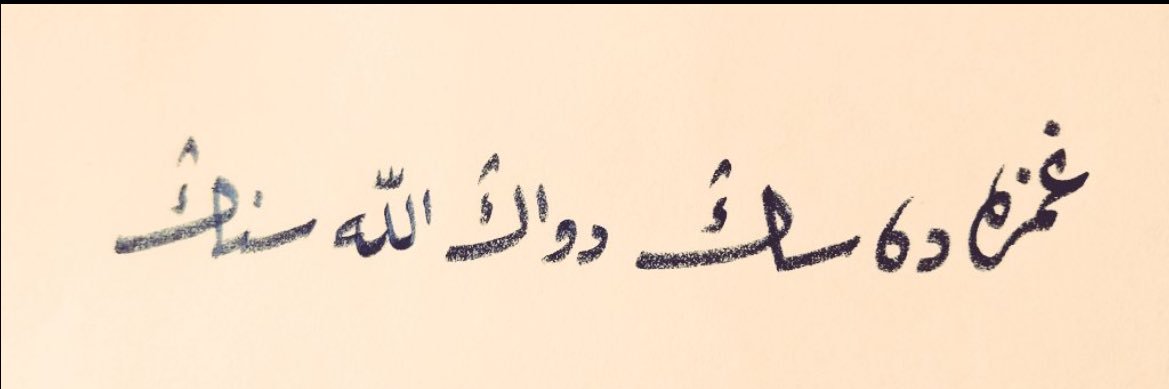 غمزه ده سك دواك الله سنك